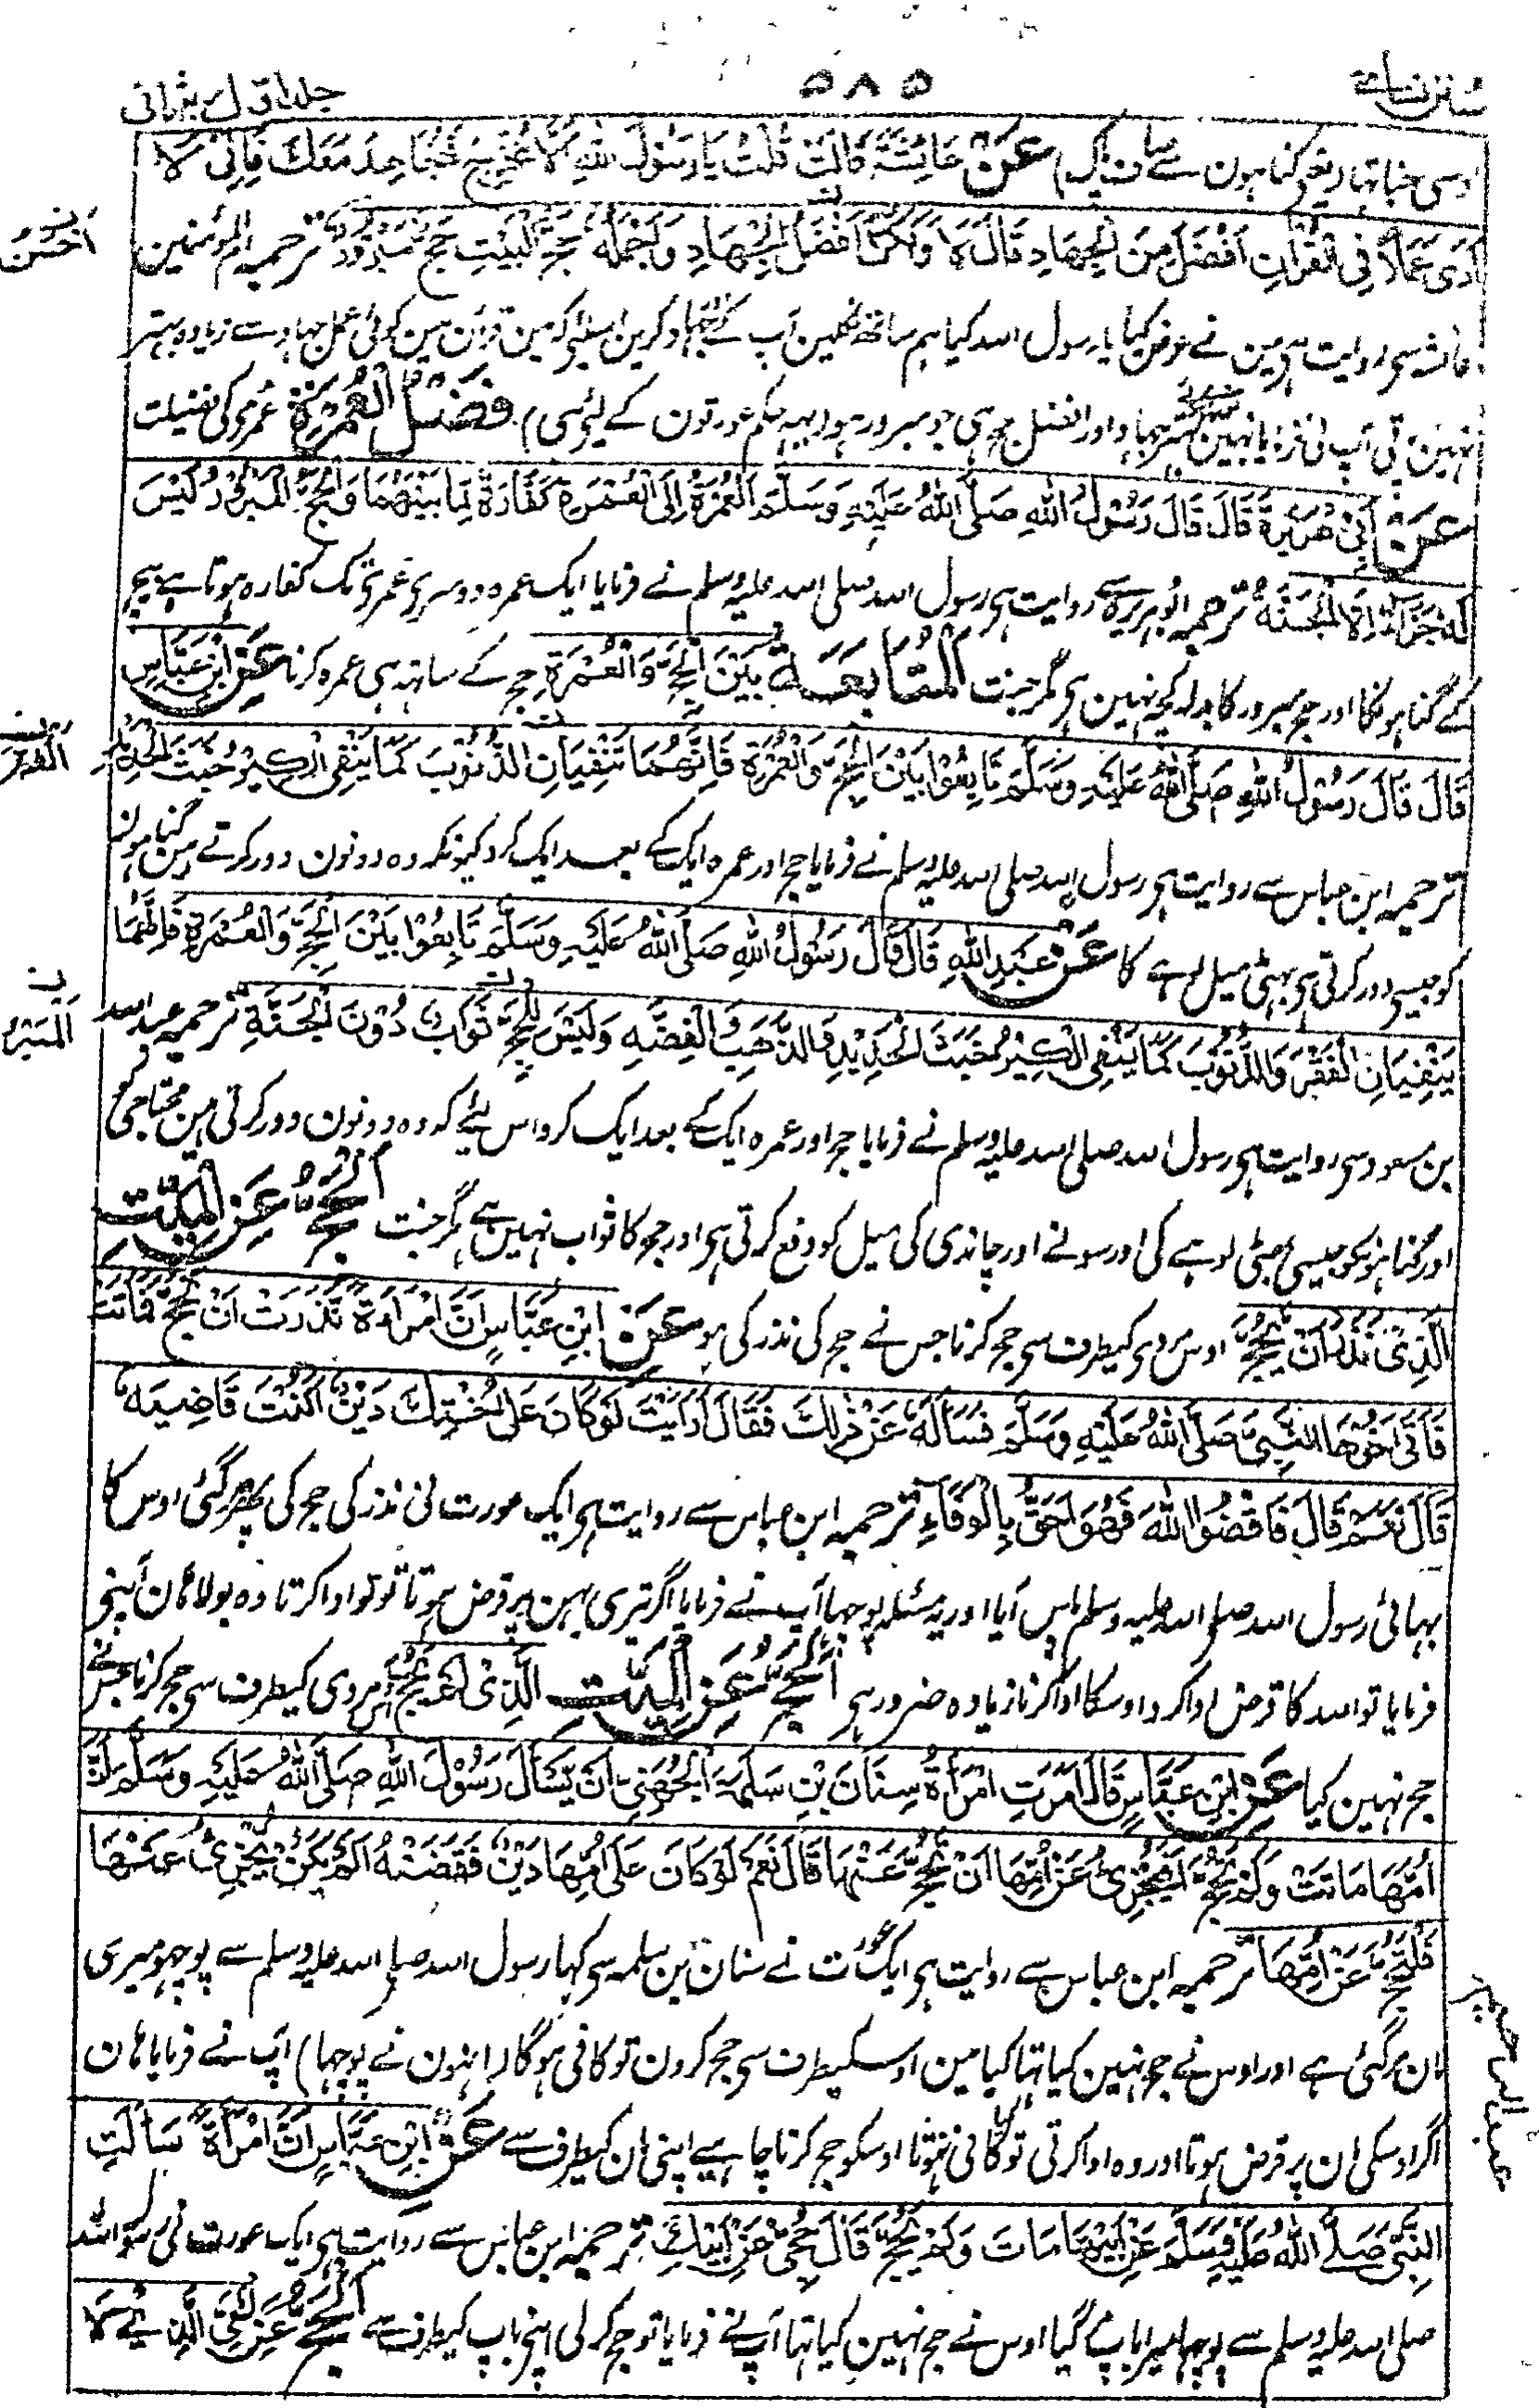 سنن نسائی
۵۸۵
جلد اول ربع ثانی
اوسی جنا تہا یعنی گناہون سے صاف پاک) عَنْ عَائِشَةَ قَالَتْ قُلْتُ يَا رَسُوْلَ اللهِ اَلَا نَخْرُجُ فَنُجَاهِدَ مَعَكَ فَاِنِّيْ لَا
اَرٰى عَمَلًا فِي الْقُرْاٰنِ اَفْضَلَ مِنَ الْجِهَادِ قَالَ لَا وَلٰكُنَّ اَفْضَلُ الْجِهَادِ وَاَجْمَلُهُ حَجُّ الْبَيْتِ حَجٌّ مَبْرُوْرٌ ترجمہ ام المؤمنین
احسن
عائشہ سے روایت ہی مین نے عرض کیا یا رسول اللہ کیا ہم ساتھ نکلین آپ کے جہاد کرین اسلئے کہ مین قرآن مین کوئی عمل جہاد سے زیادہ بہتر
نہین پاتی آپ نی فرمایا نہین بہتر جہاد اور افضل حج ہی جو مبرور ہو (یہ حکم عورتون کے لیئ ہی) فَضْلُ الْعُمْرَةِ عمرے کی فضیلت
عَنْ اَبِيْ هُرَيْرَةَ قَالَ قَالَ رَسُوْلُ اللهِ صَلَّى اللهُ عَلَيْهِ وَسَلَّمَ اَلْعُمْرَةُ اِلَى الْعُمْرَةِ كَفَّارَةٌ لِمَا بَيْنَهُمَا وَالْحَجُّ الْمَبْرُوْرُ لَيْسَ
لَهُ جَزَاءٌ اِلَّا الْجَنَّةُ ترجمہ ابوہریرہ سے روایت ہی رسول اللہ صلی اللہ علیہ وسلم نے فرمایا ایک عمرہ دوسری عمری تک کفارہ ہوتا ہے بیچ
کے گناہونکا اور حج مبرور کا بدلہ کچہ نہین ہی مگر جنت اَلْمُتَابَعَةُ بَيْنَ الْحَجِّ وَالْعُمْرَةِ حج کے ساتہ ہی عمرہ کرنا عَنِ ابْنِ عَبَّاسٍ
قَالَ قَالَ رَسُوْلُ اللهِ صَلَّى اللهُ عَلَيْهِ وَسَلَّمَ تَابِعُوْا بَيْنَ الْحَجِّ وَالْعُمْرَةِ فَاِنَّهُمَا تَنْفِيَانِ الذُّنُوْبَ كَمَا يَنْفِي الْكِيْرُ خَبَثَ الْحَدِيْدِ
الفقر
ترجمہ ابن عباس سے روایت ہی رسول اللہ صلی اللہ علیہ وسلم نے فرمایا حج اور عمرہ ایک کے بعد ایک کرو کیونکہ وہ دونون دور کرتے ہین گناہون
کو جیسی دور کرتی ہی بہٹی میل لوہے کا عَنْ عَبْدِ اللهِ قَالَ قَالَ رَسُوْلُ اللهِ صَلَّى اللهُ عَلَيْهِ وَسَلَّمَ تَابِعُوْا بَيْنَ الْحَجِّ وَالْعُمْرَةِ فَاِنَّهُمَا
يَنْفِيَانِ الْفَقْرَ وَالذُّنُوْبَ كَمَا يَنْفِي الْكِيْرُ خَبَثَ الْحَدِيْدِ وَالذَّهَبِ وَالْفِضَّةِ وَلَيْسَ لِلْحَجِّ ثَوَابٌ دُوْنَ الْجَنَّةِ ترجمہ عبد اللہ
المبرور
بن مسعود سے روایت ہی رسول اللہ صلی اللہ علیہ وسلم نے فرمایا حج اور عمرہ ایک کے بعد ایک کرو اس لیئے کہ وہ دونون دور کرتی ہین محتاجی کو
اور گناہونکو جیسی بھٹی لوہے کی اور سونے اور چاندی کی میل کو دفع کرتی ہی اور حج کا ثواب نہین ہے مگر جنت اَلْحَجُّ عَنِ الْمَيِّتِ
الَّذِيْ نَذَرَ اَنْ يَحُجَّ اوس مردی کیطرف سے حج کرنا جس نے حج کی نذر کی ہو عَنِ ابْنِ عَبَّاسٍ اَنَّ امْرَاَةً نَذَرَتْ اَنْ تَحُجَّ فَمَاتَتْ
فَاَتٰى اَخُوْهَا النَّبِيَّ صَلَّى اللهُ عَلَيْهِ وَسَلَّمَ فَسَاَلَهُ عَنْ ذٰلِكَ فَقَالَ اَرَاَيْتَ لَوْ كَانَ عَلٰى اُخْتِكَ دَيْنٌ اَكُنْتَ قَاضِيَهُ
قَالَ نَعَمْ قَالَ فَاقْضُوا اللهَ فَهُوَ اَحَقُّ بِالْوَفَاءِ ترجمہ ابن عباس سے روایت ہی ایک عورت نی نذر کی حج کی پھر مرگئی اوس کا
بہائی رسول اللہ صلی اللہ علیہ وسلم پاس آیا اور یہ مسئلہ پوچہا آپ نے فرمایا اگر تیری بہن پر قرض ہوتا تو تو ادا کرتا وہ بولا ہان آپنی
فرمایا تو اللہ کا قرض ادا کرو اوسکا ادا کرنا زیادہ ضرور ہی اَلْحَجُّ عَنِ الْمَيِّتِ الَّذِيْ لَمْ يَحُجَّ اوس مردی کیطرف سے حج کرنا جسنے
حج نہین کیا عَنِ ابْنِ عَبَّاسٍ قَالَ اَمَرَتِ امْرَاَةُ سِنَانَ بْنِ سَلَمَةَ الْجُهَنِيِّ اَنْ يَسْاَلَ رَسُوْلَ اللهِ صَلَّى اللهُ عَلَيْهِ وَسَلَّمَ اَنَّ
اُمَّهَا مَاتَتْ وَلَمْ تَحُجَّ اَفَيُجْزِئُ عَنْ اُمِّهَا اَنْ تَحُجَّ عَنْهَا قَالَ نَعَمْ لَوْ كَانَ عَلٰى اُمِّهَا دَيْنٌ فَقَضَتْهُ اَلَمْ يَكُنْ يُجْزِئُ عَنْهَا
فَلْتَحُجَّ عَنْ اُمِّهَا ترجمہ ابن عباس سے روایت ہی ایک عورت نے سنان بن سلمہ سے کہا رسول اللہ صلی اللہ علیہ وسلم سے پوچہو میری
مان مرگئی ہے اور اوس نے حج نہین کیا تہا کیا مین اوسکیطرف سے حج کرون تو کافی ہوگا (انہون نے پوچہا) آپ نے فرمایا ہان
اگر اوسکی مان پر قرض ہوتا اور وہ ادا کرتی تو کافی نہوتا اوسکو حج کرنا چاہیے اپنی مان کیطرف سے عَنِ ابْنِ عَبَّاسٍ اَنَّ امْرَاَةً سَاَلَتِ
النَّبِيَّ صَلَّى اللهُ عَلَيْهِ وَسَلَّمَ عَنْ اَبِيْهَا مَاتَ وَلَمْ يَحُجَّ قَالَ حُجِّيْ عَنْ اَبِيْكِ ترجمہ ابن عباس سے روایت ہی ایک عورت نی رسول اللہ
صلی اللہ علیہ وسلم سے پوچہا میرا باپ مرگیا اوس نے حج نہین کیا تہا آپ نے فرمایا تو حج کرلی اپنی باپ کیطرف سے اَلْحَجُّ عَنِ الْحَيِّ الَّذِيْ لَا